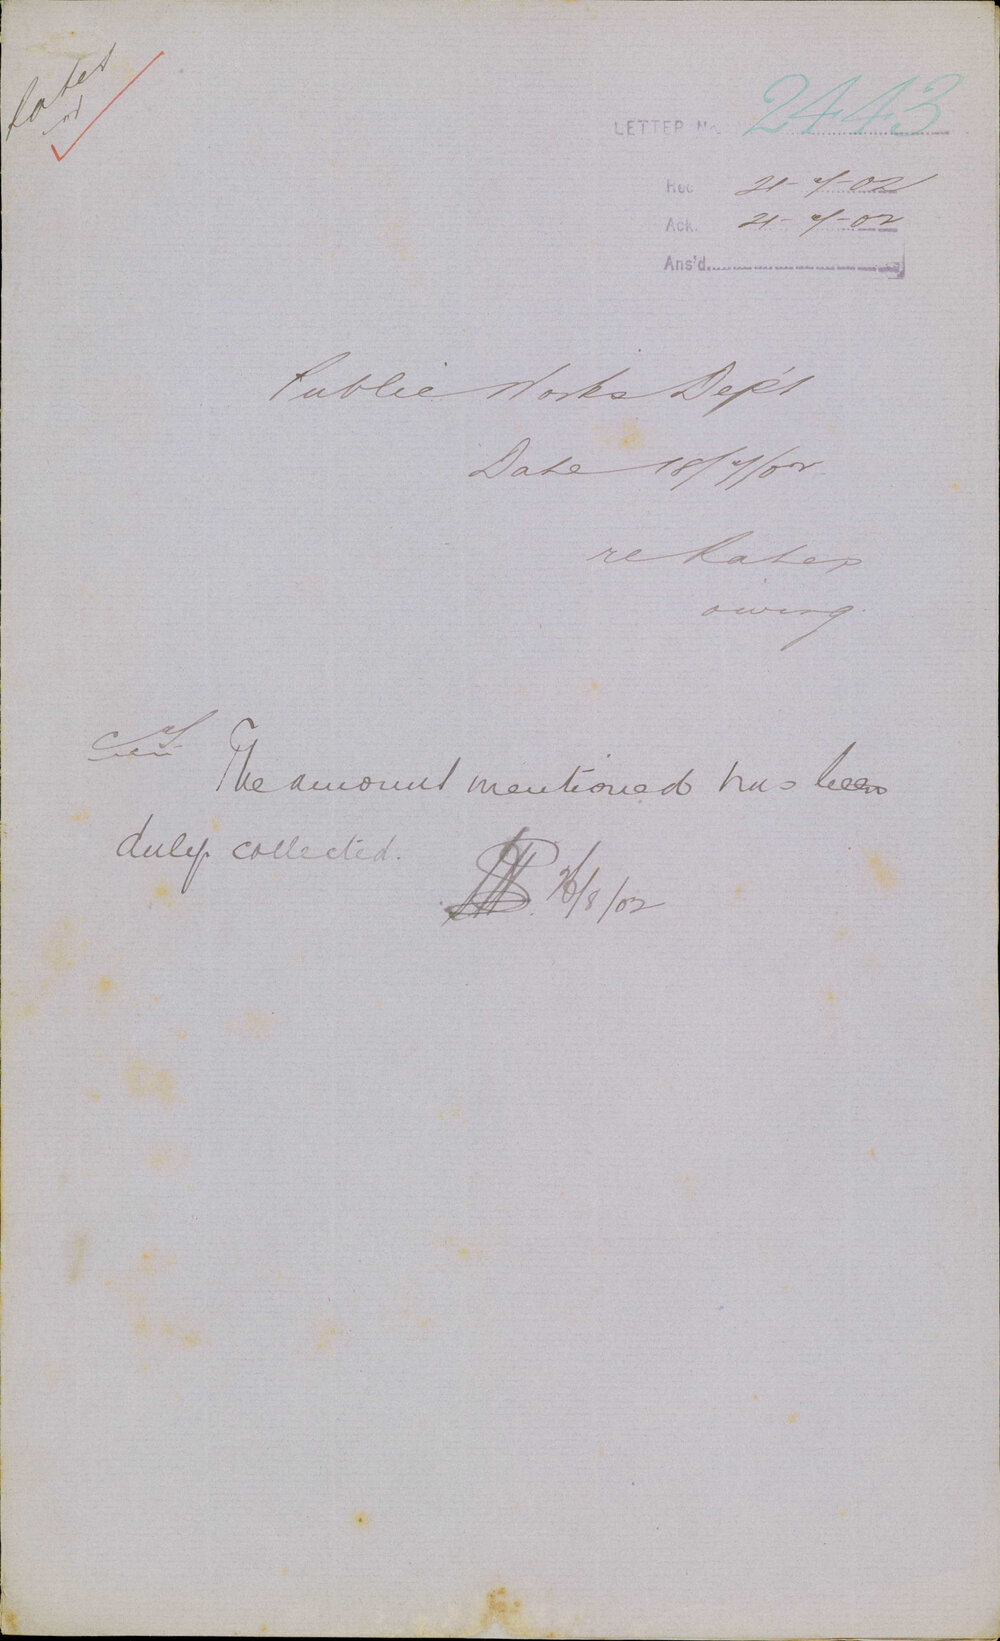 Rates
LETTER No. 2443
Rec 21-7-02
Ack. 21-7-02
Ans'd.
Public Works Dep't
Date 18/7/02
re Rates
owing
The amount mentioned has been
duly collected.
26/8/02